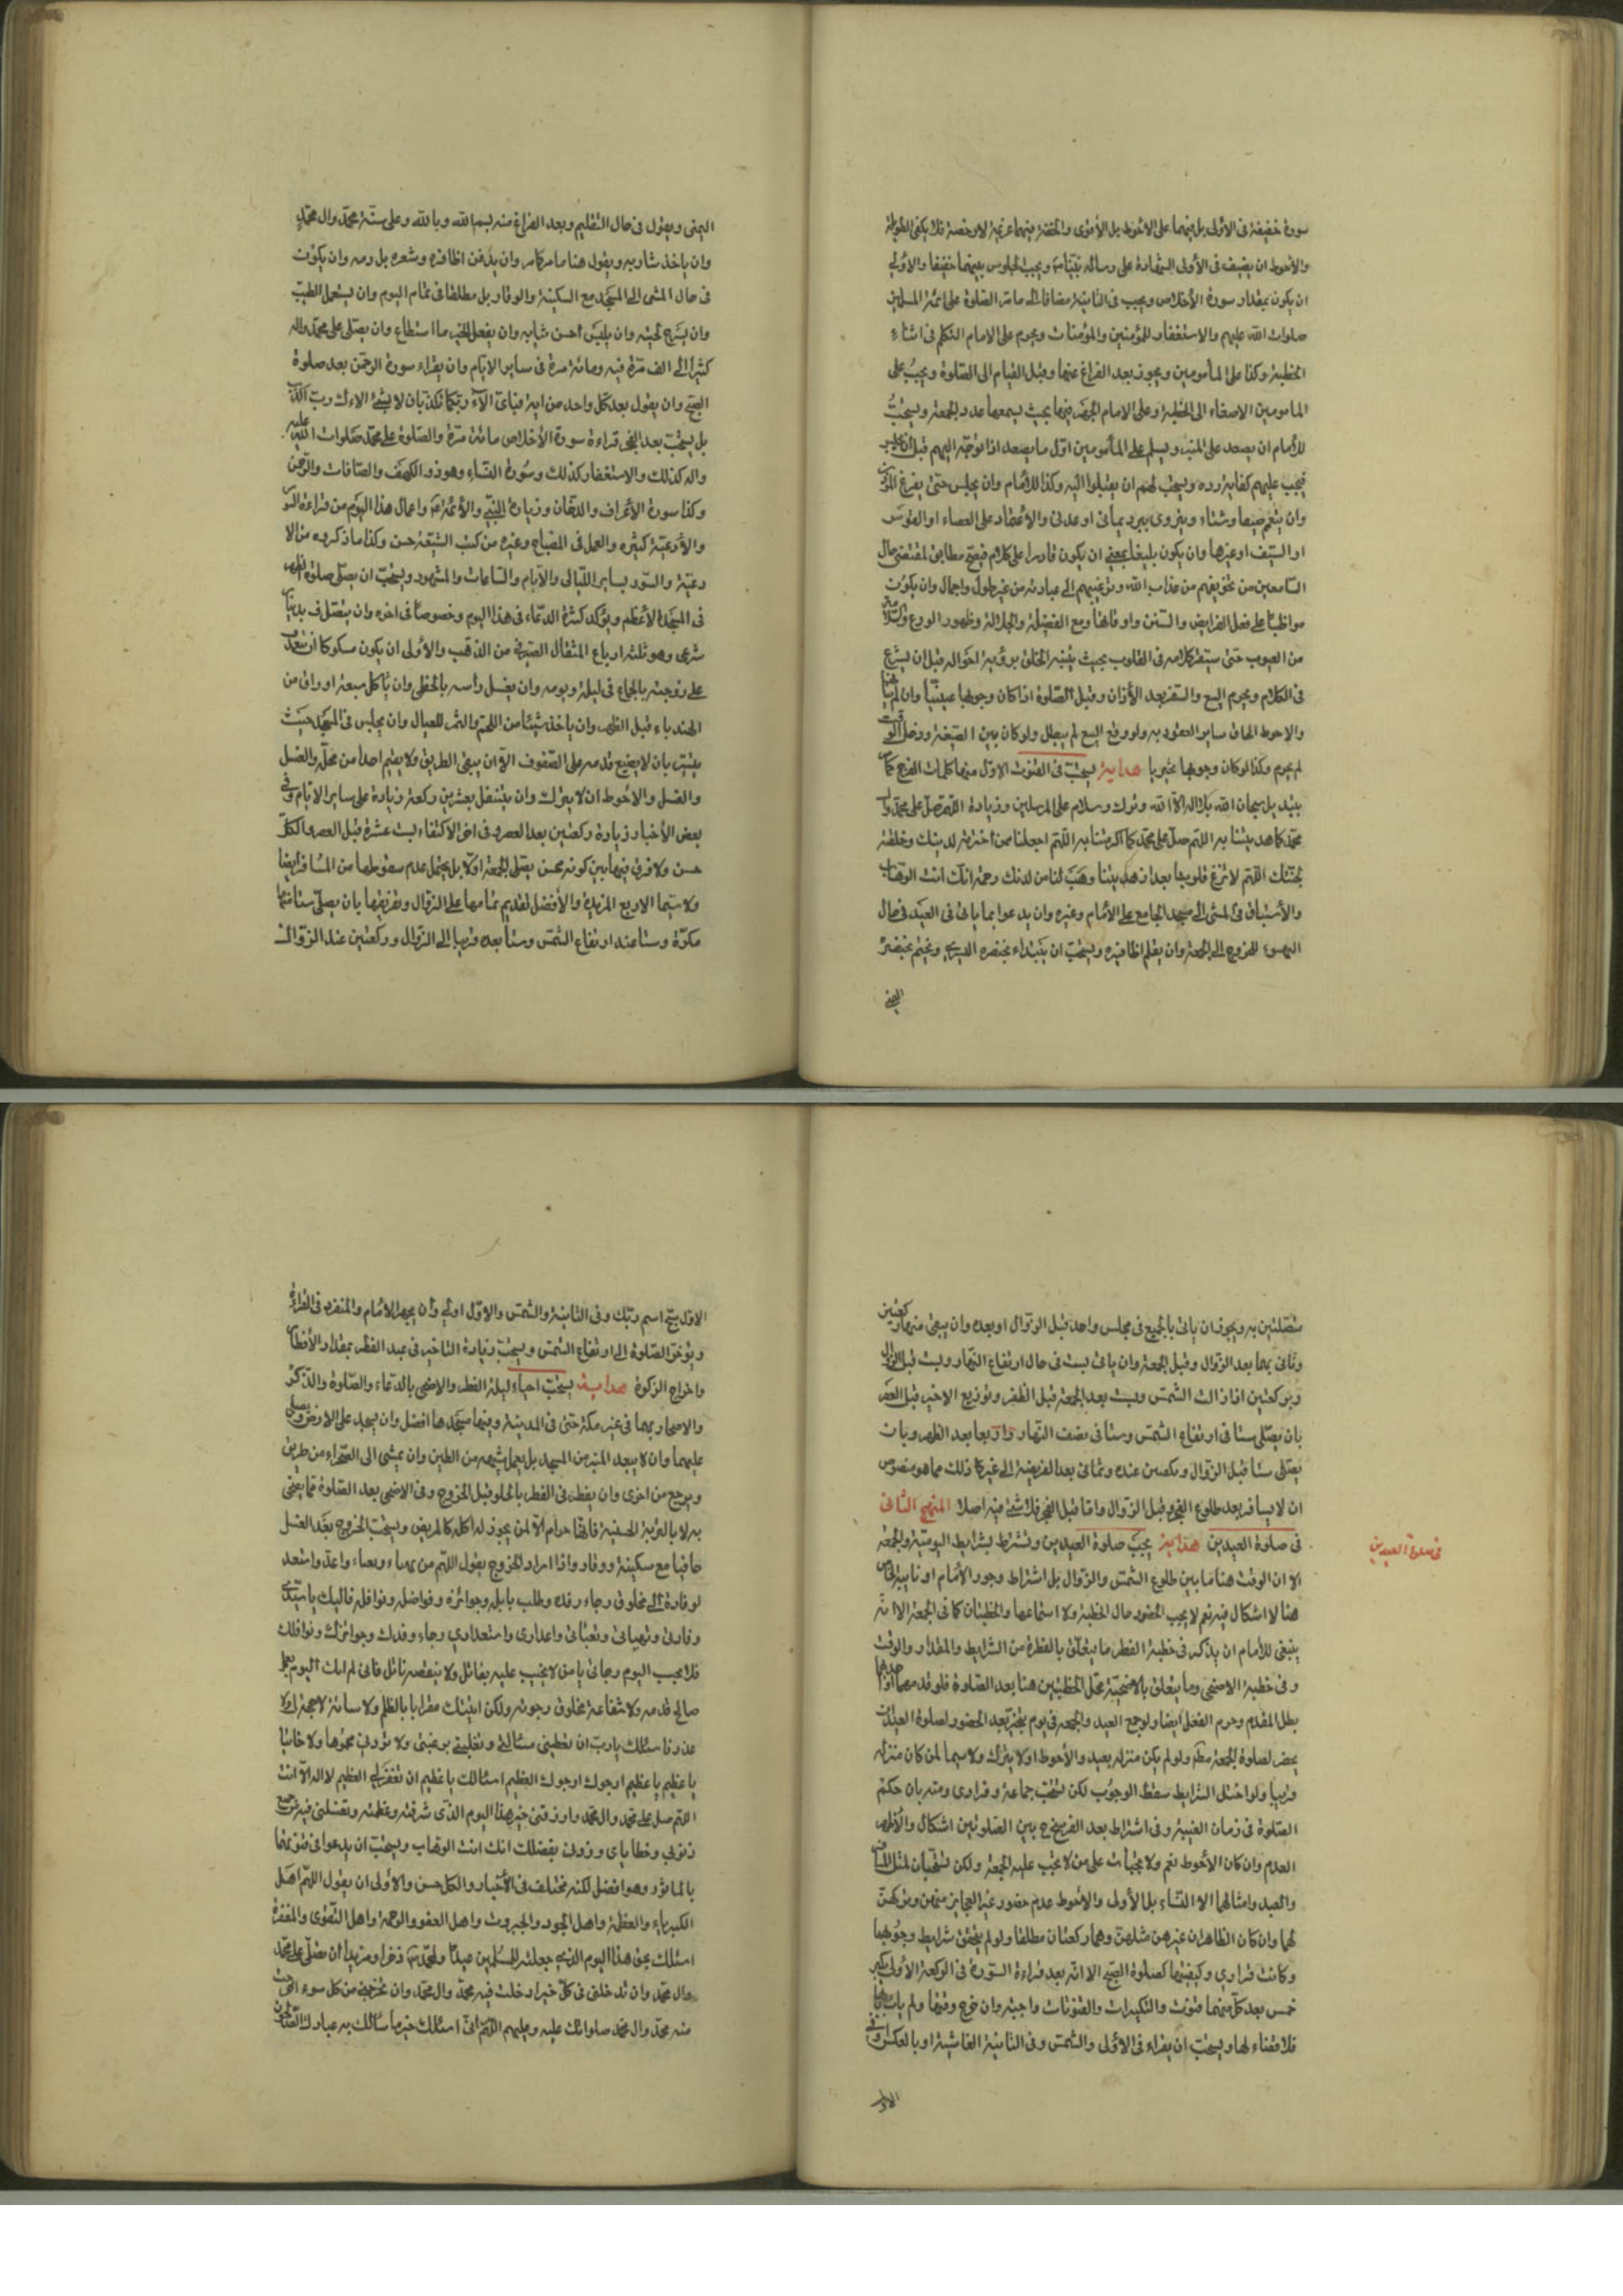 سورة خفيفة فى الاولى بل فيهما على الاحوط بل الأقوى والخفة فيهما عزيمة لا رخصة فلا يكفى الطويلة
والاحوط ان يضيف فى الأولى الشهادة على رسالة نبيّنا ص ويجب الجلوس بينهما خفيفا والأولى
ان يكون بمقدار سورة الأخلاص ويجب فى الثانية مضافا الى ما مر الصلوة على ائمة المسلمين
صلوات الله عليهم والاستغفار للمؤمنين والمؤمنات ويحرم على الامام التكلم فى اثناء
الخطبة وكذا على المأمومين ويجوز بعد الفراغ عنها وقبل القيام الى الصّلوة ويجب على
المامومين الاصغاء الى الخطبة وعلى الامام الجهر فيها بحيث يسمعها عدد الجمعة ويستحبّ
للأمام ان يصعد على المنبر ويسلم على المأمومين اوّل ما يصعد اذا توجّه اليهم قبل ان يجلس
فيجب عليهم كفاية رده ويستحب لهم ان يقبلوا اليه وكذا للأمام وان يجلس حتى يفرغ المؤذن
وان يتعمم صيفا وشتاء ويتردى ببرد يمانى او عدنى والأعتماد على العصاء او القوس
او السّيف او غيرها وان يكون بليغا بمعنى ان يكون قادرا على كلام فصيح مطابق لمقتضى حال
السّامعين من تخويفهم من عذاب الله وترغيبهم الى عبادته من غير طول واجمال وان يكون
مواظبا على فعل الفرايض والسنن واوقاتها ومع الفضيلة والجلالة وظهور الورع والسّلامة
من العيوب حتى يستقر كلامه فى القلوب بحيث يتنبه الخلق برؤية احواله قبل ان يشرع
فى الكلام ويحرم البيع والسفر بعد الأذان وقبل الصّلوة اذا كان وجوبها عينيّا وان لم
والاحوط الحاق ساير العقود به ولو وقع البيع لم يبطل ولو كان بين الصّيغة ودخل الوقت
لم يحرم وكذا لو كان وجوبها تخييريا هداية يستحبّ فى القنوت الاوّل منهما كلمات الفرج كما
محمّد كما هديتنا به اللّهم صلّ على محمّد كما اكرمتنا به اللّهم اجعلنا ممن اخترته لدينك وخلقته
لجنّتك اللّهم لا تزغ قلوبنا بعد اذ هديتنا وهب لنا من لدنك رحمة انّك انت الوهّاب
والأستباق فى المشى الى مسجد الجامع على الأمام وغيره وان يدعوا بما ياتى فى العيد فى حال
التهيوء للخروج الى الجمعة وان يقلم اظافيره ويستحبّ ان يبتداء بخنصره اليسرى ويختم بخنصره
اليمنى
اليمنى ويقول فى حال التقليم وبعد الفراغ منه بسم الله وبالله وعلى سنّة محمّد وال محمّد
وان ياخذ شاربه ويقول هنا ما مر كامر وان يدفن اظافره وشعره بل دمه وان يكون
فى حال المشى الى المسجد مع السكينة والوقار بل مطلقا فى تمام اليوم وان يستعمل الطيب
وان يسرّح لحيته وان يلبس أحسن ثيابه وان يفعل الخير ما استطاع وان يصلّى على محمّد واله
كثيرا الى الف مرّة فيه ومائة مرّة فى ساير الايّام وان يقراء سورة الرحمن بعد صلوة
الصبح وان يقول بعد كل واحد من اية فباىّ الآء ربّكما تكذّبان لا بشىء من الاءك ربّ اكذّب
بل يستحبّ بعد الفجر قراءة سورة الأخلاص مائة مرّة والصّلوة على محمّد صلوات الله عليه
واله كذلك والاستغفار كذلك وسورة النساء وهود والكهف والصّافات والرّحمن
وكذا سورة الأعراف والدّخان وزيارة النّبى والأئمّة ع واعمال هذا اليوم من قراءة السّور
والأدعيّة كثيرة والعمل فى المصباح وغيره من كتب الشّيعة حسن وكذا ما ذكروه من الا
دعية والسّور بساير اللّيالى والايّام والسّاعات والشهود ويستحبّ ان يصلّى صلوة الظهر
فى المسجد الأعظم ويؤكد كثرة الدّعاء فى هذا اليوم وخصوصا فى اخره وان يتصدّق بدينار
شرعى وهو ثلثة ارباع المثقال الصيرفى من الذّهب والأولى ان يكون مسكوكا ان
على زوجته بالجماع فى ليلة ويومه وان يغسل راسه بالخطمى وان يأكل سبعة اوراق من
الهندباء قبل الظّهر وان ياخذ شيئا من اللّحم والثّمر للعيال وان يجلس فى المسجد حيث
يتيسّر بان لا يضع قدمه على الصّفوف الّا ان يبقى الطريق ولا يقيم احدا من محلّه والغسل
والغسل والاحوط ان لا يترك وان يتنفل بعشرين ركعة زيادة على ساير الايّام وفى
بعض الأخبار زيادة ركعتين بعد العصر وفى اخر الاكتفاء بست عشرة قبل العصر والكلّ
حسن ولا فرق فيها بين كونه ممّن يصلّى الجمعة اولا بل يحتمل عدم سقوطها من المسافر ايضا
ولا سيّما الاربع المزيدة والأفضل تقديم تمامها على الزّوال وتفريقها بان يصلّى ستا
مكرّة وستا عند ارتفاع الشّمس وستا بعده قريبا الى الزّوال وركعتين عند الزّوال
متصلتين به ويجوز ان ياتى بالجميع فى مجلس واحد قبل الزّوال او بعده وان يبقى منها ركعتين
وياتى بهما بعد الزّوال وقبل الجمعة وان ياتى بست فى حال ارتفاع النّهار وبست قبل الزّوال
وبركعتين اذا زالت الشّمس وبست بعد الجمعة قبل الظّهر وتوزيع الاخير قبل العصر
بان يصلّى ستا فى ارتفاع الشّمس وستا فى نصف النّهار واربعا بعد الظهر وبان
يصلّى ستا قبل الزّوال وركعتين عنده وثمانى بعد الفريضة الى غير ذلك مما هو منصوص
ان لا يسافر بعد طلوع الفجر وقبل الزّوال وامّا قبل الفجر فلا شىء فيه اصلا المنهج الثانى
فى صلوة العيدين هداية يجب صلوة العيدين وتشترط بشرايط اليوميّة والجمعة
فى صلوة العيدين
الا ان الوقت هنا ما بين طلوع الشّمس والزّوال بل اشتراط وجود الأمام او نايبه الخاص
هنا لا اشكال فيه نعم لا يجب الحضور حال الخطبة ولا استماعها والخطبتان كما فى الجمعة الا انّه
ينبغى للأمام ان يذكر فى خطبة الفطر ما يتعلّق بالفطرة من الشّرايط والمقدار والوقت
وفى خطبة الاضحى وما يتعلّق بالاضحيّة محلّ الخطبتين هنا بعد الصّلوة فلو قدمهما او احدهما
بطل المقدم وحرم الفعل ايضا ولو جمع العيد والجمعة فى يوم يتخير بعد الحضور لصلوة العيد ان
يحضر لصلوة الجمعة مط ولو لم يكن منزله بعيد والأحوط اولا يترك ولا سيما لمن كان منزله
قريبا ولو اختل الشرايط سقط الوجوب لكن يستحب جماعة وفرادى ومنه بان حكم
الصّلوة فى زمان الغيبة وفى اشتراط بعد الفرسخ بين الصّلوتين اشكال والأظهر
العدم وان كان الأحوط نعم ولا يجبات على من لا يجب عليه الجمعة ولكن يستحبّان لمثل المسافر
والعبد وامثالهما الا النّساء بل الأولى والاحوط عدم حضور غير العجايز منهن وتركهنّ
لهما وان كان الظاهران غيرهن مثلهنّ وهما ركعتان مطلقا ولو لم يتحقق شرايط وجوبهما
وكانت فرادى وكيفيتهما كصلوة الصبح الا انّه بعد قراءة السّورة فى الرّكعة الأولى يكبر
خمس بعد كلّ منهما قنوت والتكبيرات والقنوتات واجبة وان خرج وقتها ولم يات بها
فلا قضاء لها ويستحبّ ان يقراء فى الأولى والشّمس وفى الثانية الغاشية او بالعكس وفى
الاولى
الاولى سبّح اسم ربّك وفى الثانية والشّمس والاوّل اولى وان يجهر الامام والمنفرد فى القراءة
ويؤخر الصّلوة الى ارتفاع الشّمس ويستحبّ زيادة التاخير فى عيد الفطر بمقدار الأفطار
واخراج الزكوة هداية يستحبّ احياء ليلة الفطر والاضحى بالدّعاء والصّلوة والذّكر
والاصحار بهما فى غير مكّة حتى فى المدينة وفيها مسجدها افضل وان يسجد على الارض ويصلى
عليهما وان لا يبعد المنبر من المسجد بل يعمل شبهه من الطين وان يمشى الى الصّحراء من طريق
ويرجع من اخرى وان يفطر فى الفطر بالحلو قبل الخروج وفى الاضحى بعد الصّلوة مما يضحى
به لا بالتربة الحسينية فانّها حرام الّا لمن يجوز له اكله كالمريض ويستحبّ الخروج بعد الغسل
حافيا مع سكينة ووقار واذا اراد الخروج يقول اللّهم من تهياء وتعباء واعدّ واستعد
لوفادة الى مخلوق رجاء رفده وطلب نايله وجوائزه وفواضله ونوافله فاليك يا سيّدى
وفادتى وتهيائى وتعبّائى واعدادى واستعدادى رجاء رفدك وجوائزك ونوافلك
فلا تخيب اليوم رجائى يا من لا يخيب عليه سائل ولا ينقصه نائل فانى لم اتك اليوم بعمل
صالح قدمته ولا شفاعة مخلوق رجوته ولكن اتيتك مقرّا بالظلم ولا ساءة لا حجة لى ولا
عذر فاسئلك يا ربّ ان تعطينى مسئلتى وتقلبنى برغبتى ولا تردنى محروما ولا خائبا
يا عظيم يا عظيم ارجوك ارجوك العظيم اسئالك يا عظيم ان تغفر لى العظيم لا اله الّا انت
اللّهم صل على محمّد وال محمّد وارزقنى خير هذا اليوم الّذى شرفته وعظمته وتغسلنى فيه من جميع
ذنوبى وخطاياى وزدنى بفضلك انك انت الوهاب ويستحب ان يدعوا فى قنوتها
بالماثور وهو افضل لكنه مختلف فى الأخبار والكل حسن والاولى ان يقول اللّهم اهل
الكبرياء والعظمة واهل الجود والجبروت واهل العفو والرحمة واهل التّقوى والمغفرة
اسئلك بحق هذا اليوم الّذى جعلته للمسلمين عيدا ولمحمّد ص ذخرا ومزيدا ان تصلّى على محمّد
وال محمّد وان تدخلنى فى كلّ خير ادخلت فيه محمّد وال محمّد وان تخرجنى من كل سوء اخرجت
منه محمّد وال محمّد صلواتك عليه وعليهم اللّهم انّى اسئلك خير ما سئالك به عبادك الصّالحون